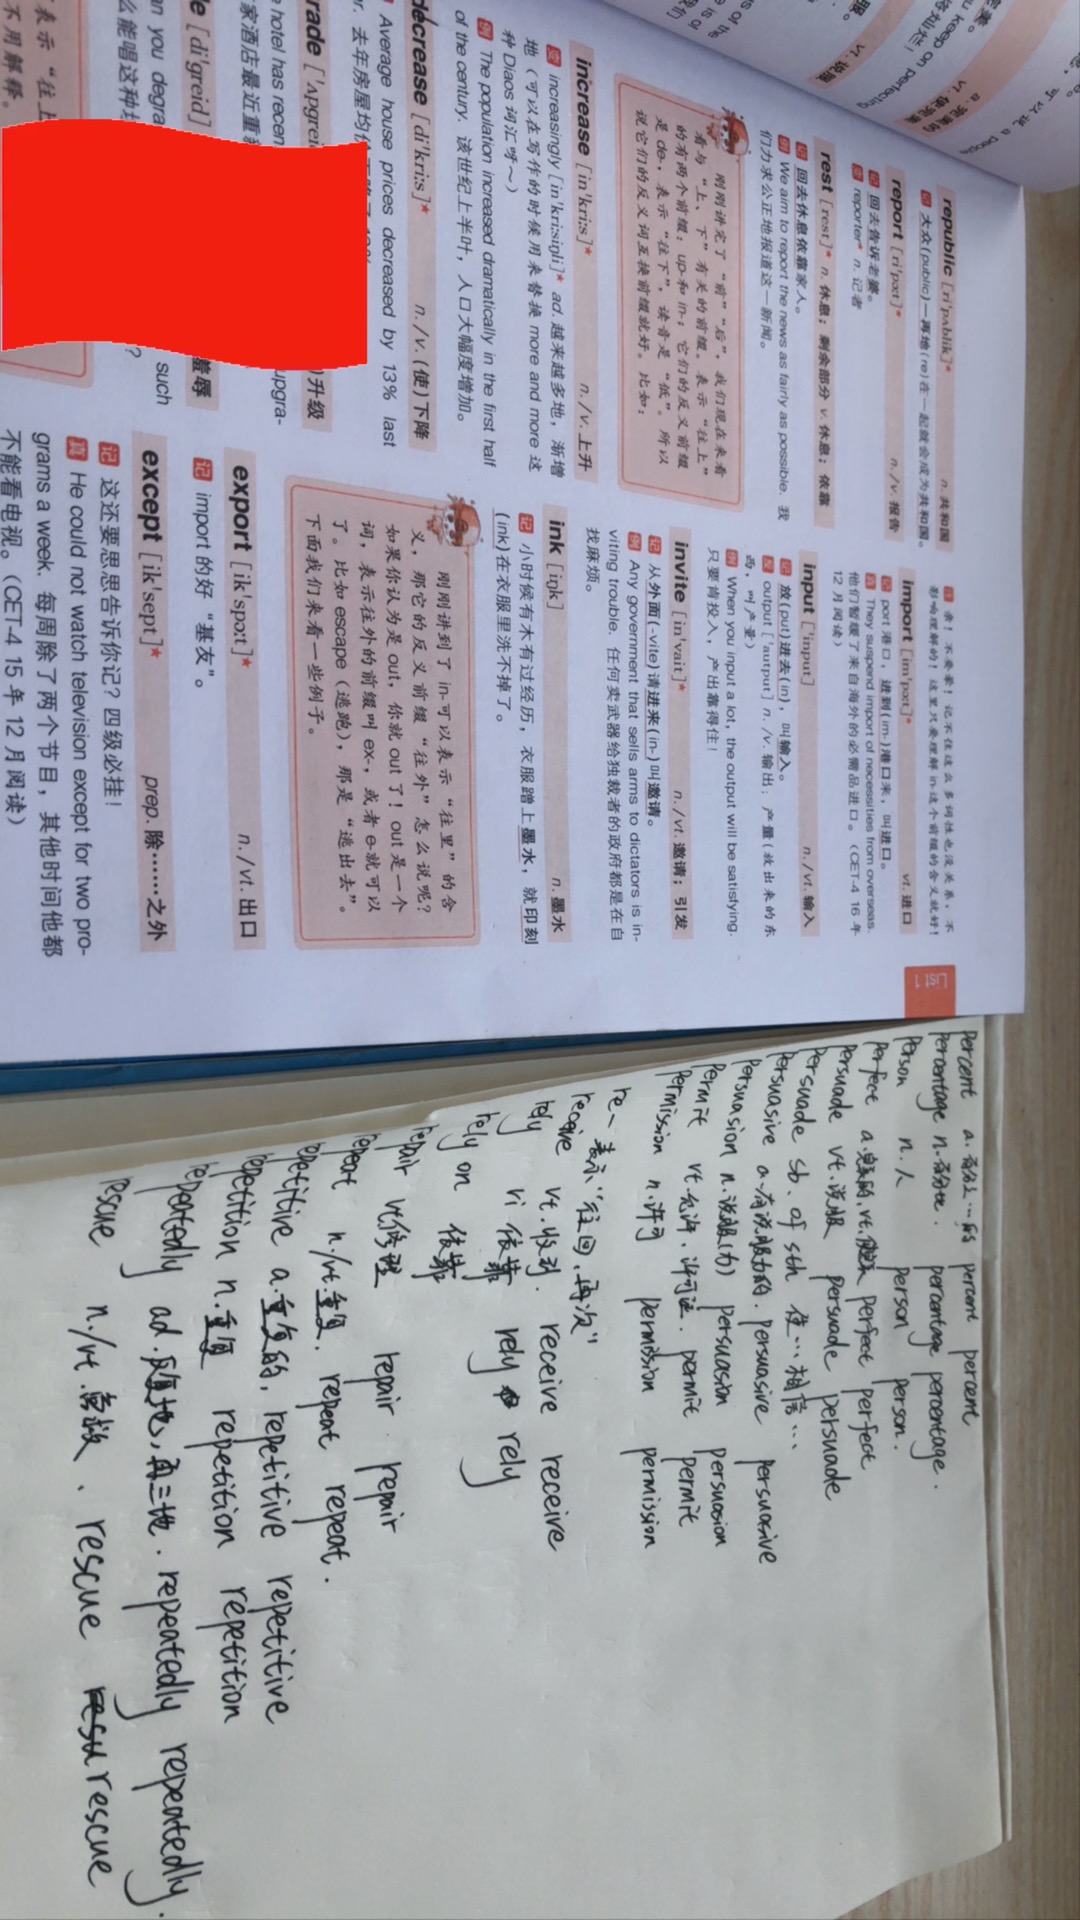 republic [ri'pʌblik]* n. 共和国
记 大众(public)一再地(re)在一起就会成为共和国。
report [ri'pɔ:t]* n./v. 报告
记 回去告诉老婆。
变 reporter* n. 记者
rest [rest]* n. 休息；剩余部分 v. 休息；依靠
记 回去休息依靠家人。
We aim to report the news as fairly as possible. 我
们力求公正地报道这一新闻。
刚刚讲完了“前”“后”，我们现在来看
看与“上、下”有关的前缀。表示“往上”
的有两个前缀：up-和 in-；它们的反义前缀
是 de-，表示“往下”，读音是“低”，所以
说它们的反义词互换前缀就好。比如：
increase [in'kri:s]* n./v. 上升
变 increasingly [in'kri:siŋli]* ad. 越来越多地，渐增
地（可以在写作的时候用来替换 more and more 这
种 Diaos 词汇呼～）
例 The population increased dramatically in the first half
of the century. 该世纪上半叶，人口大幅度增加。
decrease [di'kri:s]* n./v. (使)下降
Average house prices decreased by 13% last
去年房屋均价
)升级
hotel has recen
upgra-
家酒店最近重
[di'greid]
羞辱
an you degra
such
么能唱这种
表示“往上
不用解释。
余！不要晕！记不住这么多词性也没关系，不
影响理解的！这里只要理解 in-这个前缀的含义就好！
import [im'pɔ:t]* vt. 进口
记 port 港口，进到(im-)港口来，叫进口。
真 They suspend import of necessities from overseas.
他们暂缓了来自海外的必需品进口。（CET-4 16 年
12 月阅读）
input ['input] n./vt. 输入
记 放(put)进去(in)，叫输入。
反 output ['autput] n./v. 输出；产量(放出来的东
西，叫产量)
例 When you input a lot, the output will be satisfying.
只要肯投入，产出靠得住！
invite [in'vait]* n./vt. 邀请；引发
记 从外面(-vite)请进来(in-)叫邀请。
例 Any government that sells arms to dictators is in-
viting trouble. 任何卖武器给独裁者的政府都是在自
找麻烦。
ink [iŋk] n. 墨水
记 小时候有木有过经历，衣服蹭上墨水，就印刻
(ink)在衣服里洗不掉了。
刚刚讲到了 in-可以表示“往里”的含
义，那它的反义前缀“往外”怎么说呢？
如果你认为是 out，你就 out 了！out 是一个
词，表示往外的前缀叫 ex-，或者 e-就可以
了。比如 escape（逃跑），那是“逃出去”。
下面我们来看一些例子。
export [ik'spɔ:t]* n./vt. 出口
记 import 的好“基友”。
except [ik'sept]* prep. 除……之外
记 这还要思思告诉你记？四级必挂！
真 He could not watch television except for two pro-
grams a week. 每周除了两个节目，其他时间他都
不能看电视。（CET-4 15 年 12 月阅读）
percent a. 百分之…的 percent percent
percentage n. 百分比. percentage percentage.
person n. 人 person person.
perfect a. 完美的, vt. 使完美 perfect perfect
persuade vt. 说服 persuade persuade
persuade sb. of sth 使…相信…
persuasive a. 有说服力的. persuasive persuasive
persuasion n. 说服(力) persuasion persuasion
permit vt. 允许. 许可证. permit permit
permission n. 许可 permission permission
re- 表示“往回、再次”
receive vt. 收到. receive receive
rely vi 依靠 rely rely
rely on 依靠
repair vt 修理 repair repair
repeat n./vt. 重复. repeat repeat.
repetitive a. 重复的, repetitive repetitive
repetition n. 重复 repetition repetition
repeatedly ad. 反复地, 再三地. repeatedly repeatedly.
rescue n./vt. 营救. rescue rescue